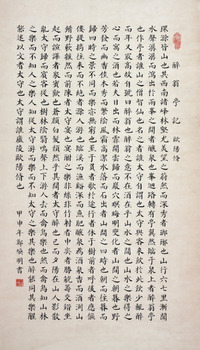 醉翁亭記 歐陽脩
環滁皆山也其西南諸峰林壑尤美望之蔚然而深秀者瑯琊也山行六七里漸聞
水聲潺潺而瀉出于兩峰之間者釀泉也峰回路轉有亭翼然臨于泉上者醉翁亭
也作亭者誰山之僧智僊也名之者誰太守自謂也太守與客來飲于此飲少輒醉
而年又最高故自號曰醉翁也醉翁之意不在酒在乎山水之間也山水之樂得之
心而寓之酒也若夫日出而林霏開雲歸而巖穴暝晦明變化者山間之朝暮也野
芳發而幽香佳木秀而繁陰風霜高潔水落而石出者山間之四時也朝而往暮而
歸四時之景不同而樂亦無窮也至于負者歌於途行者休于樹前者呼後者應傴
僂提攜往來而不絕者滁人遊也臨溪而漁溪深而魚肥釀泉為酒泉香而酒洌山
餚野蔌雜然而前陳者太守宴也宴酣之樂非絲非竹射者中奕者勝觥籌交錯坐
起而諠譁者眾賓懽也蒼顏白髮頹然乎其間者太守醉也已而夕陽在山人影散
亂太守歸而賓客從也樹林陰翳鳴聲上下遊人去而禽鳥樂也然而禽鳥知山林
之樂而不知人之樂人知從太守遊而樂而不知太守之樂其樂也醉能同其樂醒
能述以文者太守也太守謂誰廬陵歐陽脩也
甲申年鄭煥明書